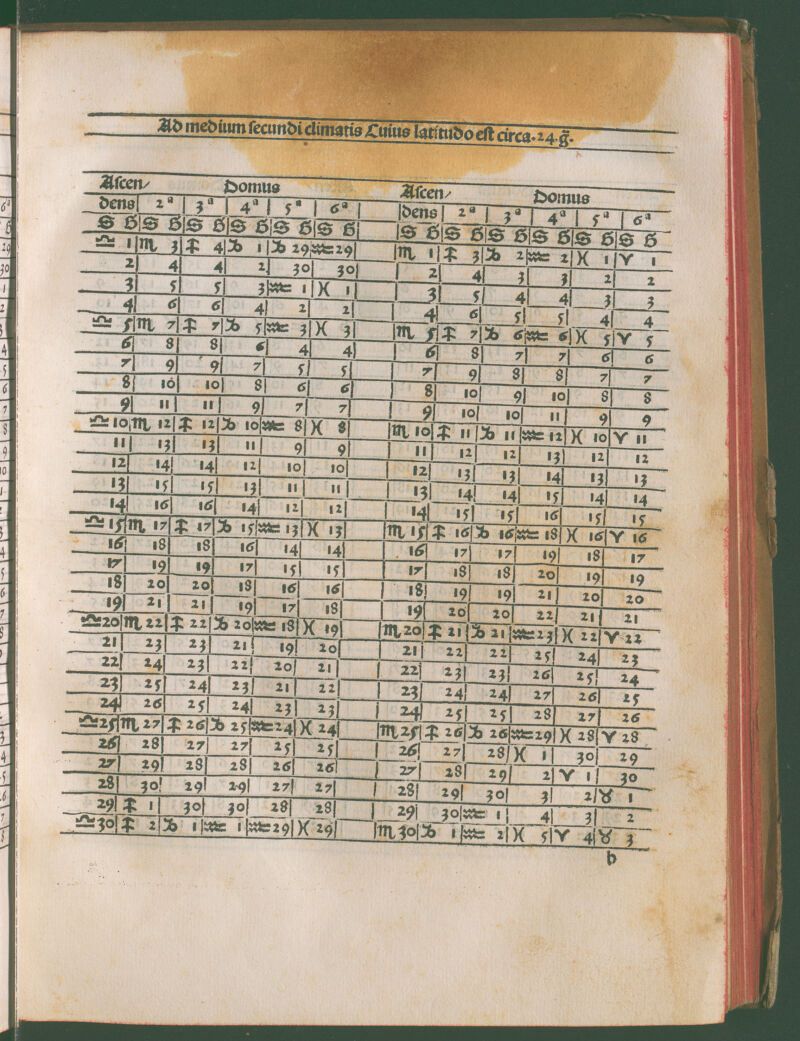 Ad medium ſecundi climatis Cuius latitudo eſt circa.24.g̃.
Aſcen/ Domus
dens 2ª 3ª 4ª 5ª 6ª
S G S G S G S G S G S G
♎ 1 ♏ 3 ♐ 4 ♑ 1 ♑ 29 ♒ 29
2 4 4 2 30 30
3 5 5 3 ♒ 1 ♓ 1
4 6 6 4 2 2
♎ 5 ♏ 7 ♐ 7 ♑ 5 ♒ 3 ♓ 3
6 8 8 6 4 4
7 9 9 7 5 5
8 10 10 8 6 6
9 11 11 9 7 7
♎ 10 ♏ 12 ♐ 12 ♑ 10 ♒ 8 ♓ 8
11 13 13 11 9 9
12 14 14 12 10 10
13 15 15 13 11 11
14 16 16 14 12 12
♎ 15 ♏ 17 ♐ 17 ♑ 15 ♒ 13 ♓ 13
16 18 18 16 14 14
17 19 19 17 15 15
18 20 20 18 16 16
19 21 21 19 17 18
♎ 20 ♏ 22 ♐ 22 ♑ 20 ♒ 18 ♓ 19
21 23 23 21 19 20
22 24 23 22 20 21
23 25 24 23 21 22
24 26 25 24 23 23
♎ 25 ♏ 27 ♐ 26 ♑ 25 ♒ 24 ♓ 24
26 28 27 27 25 25
27 29 28 28 26 26
28 30 29 29 27 27
29 ♐ 1 30 30 28 28
♎ 30 ♐ 2 ♑ 1 ♒ 1 ♒ 29 ♓ 29
Aſcen/ Domus
dens 2ª 3ª 4ª 5ª 6ª
S G S G S G S G S G S G
♏ 1 ♐ 3 ♑ 2 ♒ 2 ♓ 1 ♈ 1
2 4 3 3 2 2
3 5 4 4 3 3
4 6 5 5 4 4
♏ 5 ♐ 7 ♑ 6 ♒ 6 ♓ 5 ♈ 5
6 8 7 7 6 6
7 9 8 8 7 7
8 10 9 10 8 8
9 10 10 11 9 9
♏ 10 ♐ 11 ♑ 11 ♒ 12 ♓ 10 ♈ 11
11 12 12 13 12 12
12 13 13 14 13 13
13 14 14 15 14 14
14 15 15 16 15 15
♏ 15 ♐ 16 ♑ 16 ♒ 18 ♓ 16 ♈ 16
16 17 17 19 18 17
17 18 18 20 19 19
18 19 19 21 20 20
19 20 20 22 21 21
♏ 20 ♐ 21 ♑ 21 ♒ 23 ♓ 22 ♈ 22
21 22 22 25 24 23
22 23 23 26 25 24
23 24 24 27 26 25
24 25 25 28 27 26
♏ 25 ♐ 26 ♑ 26 ♒ 29 ♓ 28 ♈ 28
26 27 28 ♓ 1 30 29
27 28 29 2 ♈ 1 30
28 29 30 3 2 ♉ 1
29 30 ♒ 1 4 3 2
♏ 30 ♑ 1 ♒ 2 ♓ 5 ♈ 4 ♉ 3
b